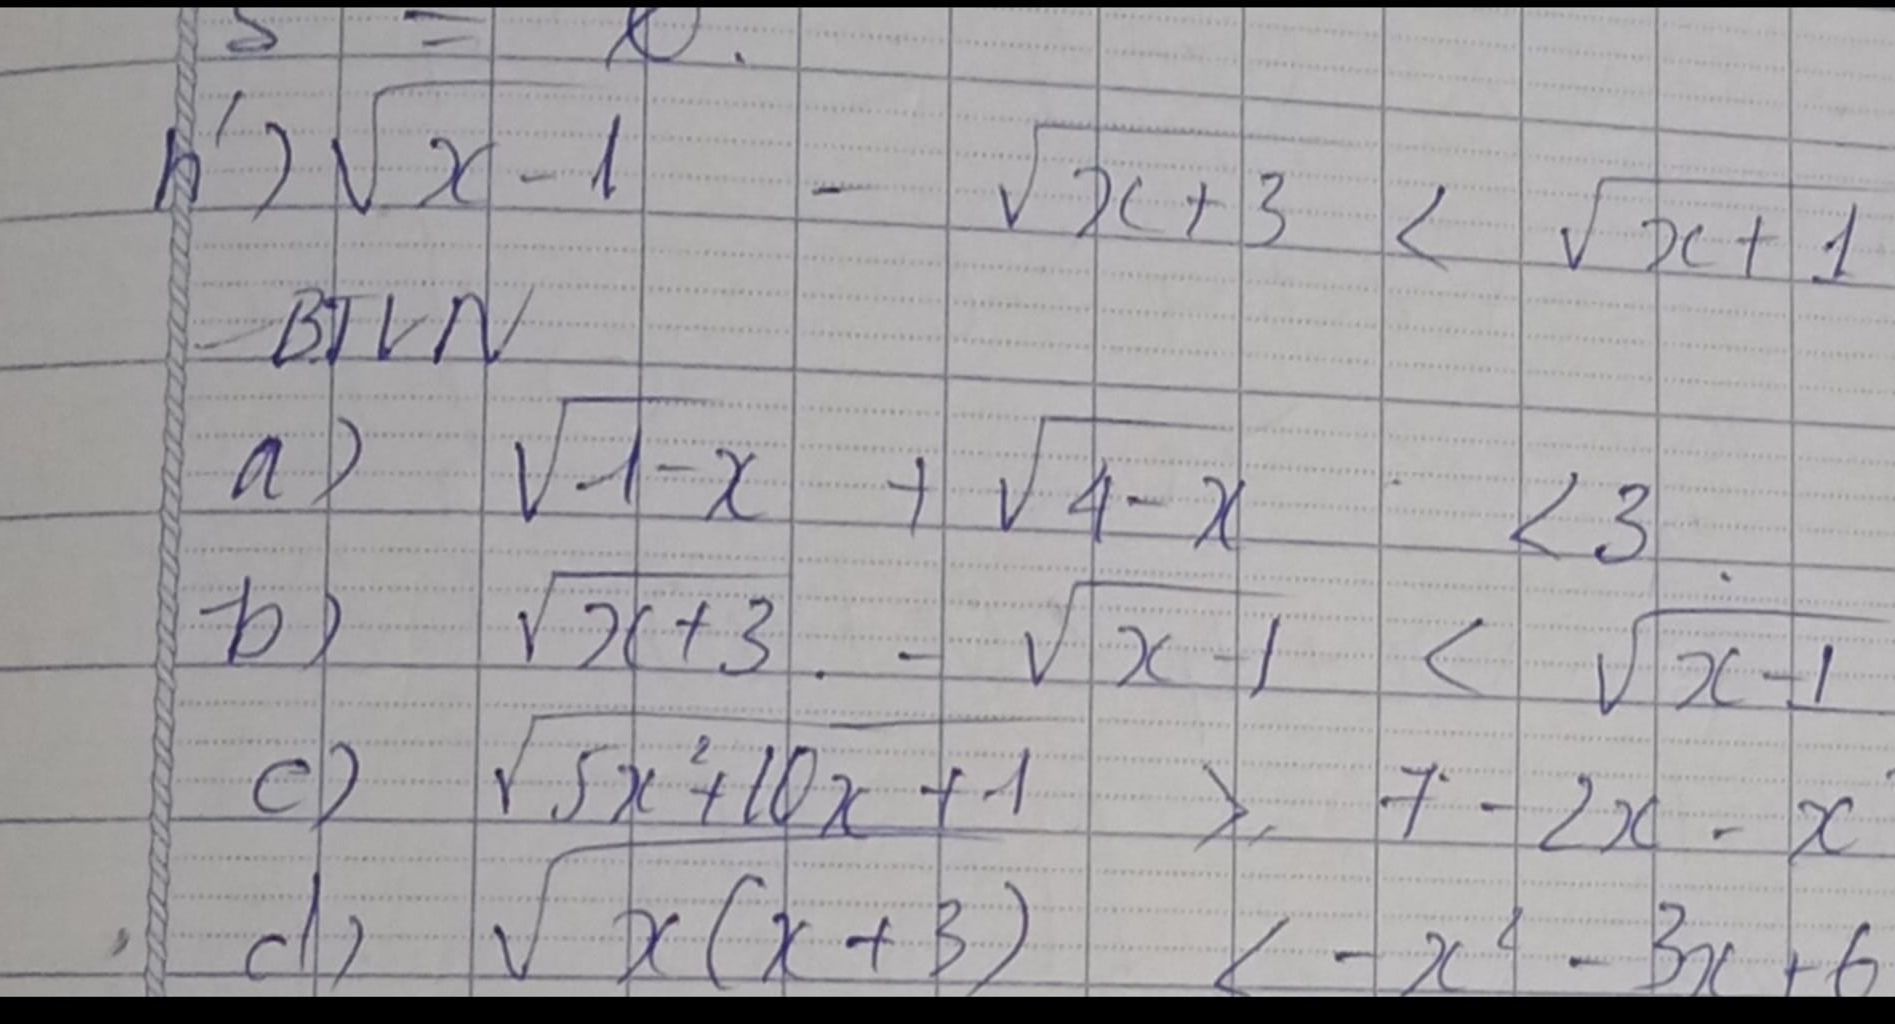 S = R.
h') √(x-1) - √(x+3) < √(x+1)
BTVN
a) √(1-x) + √(4-x) < 3
b) √(x+3) - √(x-1) < √(x-1)
c) √(5x²+10x+1) ≥ 7 - 2x - x
d) √(x(x+3)) < -x² - 3x + 6